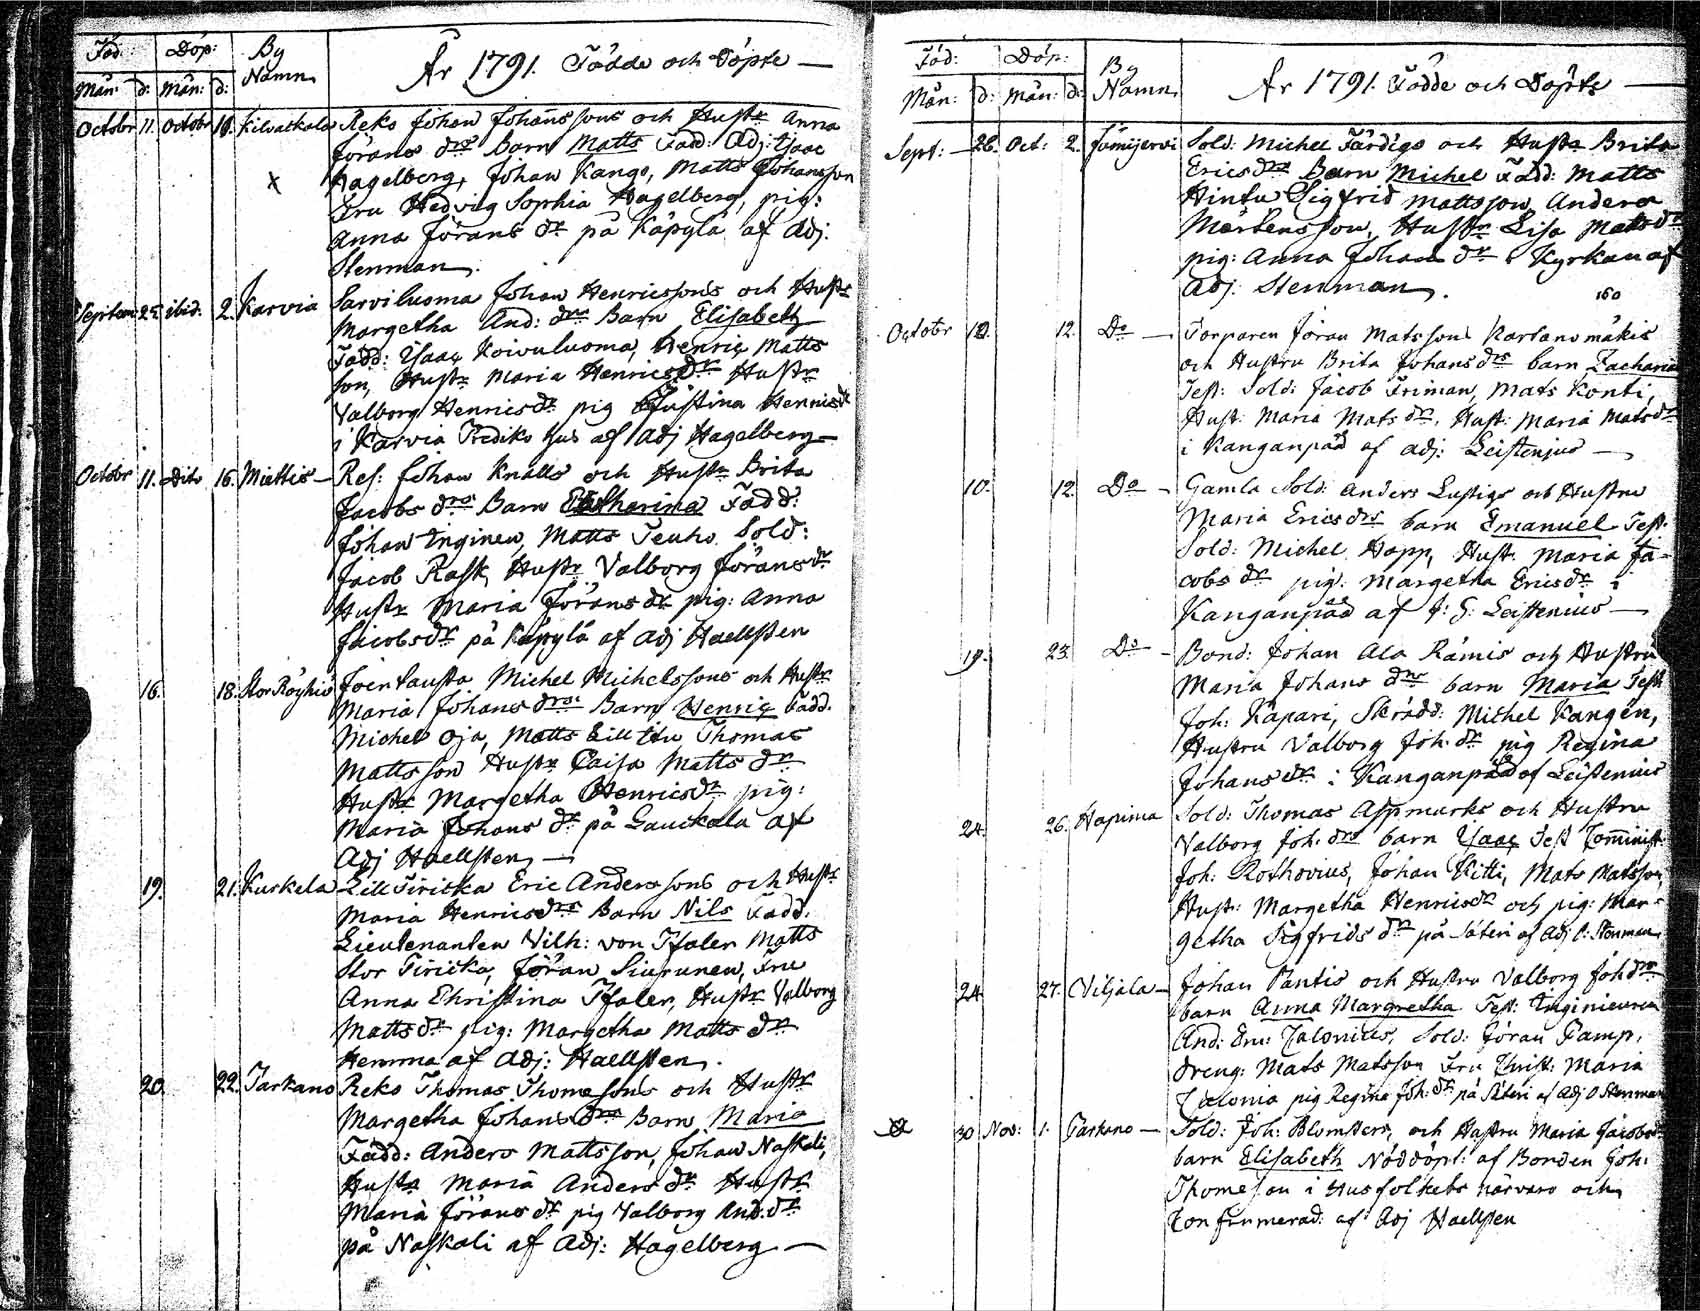 Föd: Döp: By Namn År 1791. Födde och Döpte —
Mån: d: Mån: d:
Octobr 11. Octobr 18. Kilvatkala Reko Johan Johanssons och Hustr Anna
Jörans drs Barn Matts Fadd: Adj: Ysaac
Hagelberg, Johan Kango, Matts Johansson
Fru Hedvig Sophia Hagelberg, pig:
Anna Jörans dr på Käpylä af Adj:
Stenman.
Septem 25 ibid. 2. Karvia Sarviluoma Johan Henricssons och Hustr
Margetha And: drs Barn Elisabeth
Fadd: Ysaac Koivuluoma, Henric Matts
son, Hustr Maria Henricsdr Hustr
Valborg Henricsdr pig Justina Henricsdr
i Karvia Prediko hus af Adj Hagelberg
Octobr 11. Dito 16. Miettis — Res: Johan Knalls och Hustr Brita
Jacobs drs Barn Catharina Fadd:
Johan Inginen, Matts Teuho Sold:
Jacob Rask, Hustr Valborg Jöransdr
Hustr Maria Jörans dr pig: Anna
Jacobsdr på Käpylä af Adj Haellsten
16. 18. Stor Röyhiö Joentausta Michel Michelssons och Hustr
Maria Johans drs Barn Henric Fadd.
Michel Oja, Matts Lill Thomas
Mattsson Hustr Caisa Matts dr
Hustr Margetha Henricsdr pig:
Maria Johans dr på Lauckala af
Adj Haellsten —
19. 21. Kurkela Lill Tiricka Eric Anderssons och Hustr
Maria Henricsdrs Barn Nils Fadd:
Lieutenanten Vilh: von Tfaler Matts
Stor Tiricka, Jöran Siurunen, Fru
Anna Christina Tfaler, Hustr Valborg
Mattsdr pig: Margetha Matts dr
Hemma af Adj: Haellsten.
20. 22. Parkano Reko Thomas Thomessons och Hustr
Margetha Johans drs Barn Maria
Fadd: Anders Mattsson, Johan Naskali,
Hustr Maria Anders dr Hustr
Maria Jörans dr pig Valborg And: dr
på Naskali af Adj: Hagelberg —
Föd: Döp: By Namn År 1791. Födde och Döpte —
Mån: d: Mån: d:
Sept: — 26. Oct: 2. Jämijervi Sold: Michel Färdigs och Hustr Brita
Ericsdrs Barn Michel Fadd: Matts
Hintu Sigfrid Mattsson, Anders
Mårtensson, Hustr Lisa Mattsdr
pig: Anna Johans dr i Kyrkan af
Adj: Stenman.
160
Octobr 10. 12. Do — Torparen Jöran Matssons Kartanomäkis
och Hustru Brita Johansdrs barn Zacharia
Test: Sold: Jacob Friman, Mats Konti,
Hust: Maria Mats dr, Hust: Maria Matsdr
i Kanganpää af adj: Leistenius —
10. 12. Do — Gamla Sold: Anders Lustigs och Hustru
Maria Ericsdrs barn Emanuel Test:
Sold: Michel Happ, Hust: Maria Ja-
cobs dr pig: Margetha Ericsdr i
Kanganpää af J: G: Leistenius —
19. 23. Do — Bond: Johan Ala Rämis och Hustru
Maria Johans drs barn Maria Test
Joh: Käpari, Skrädd: Michel Kangén,
Hustru Valborg Joh. dr pig Regina
Johansdr i Kanganpää af Leistenius
24. 26. Hapima Sold: Thomas Appmarks och Hustru
Valborg Joh. drs barn Ysaac Test Comminist:
Joh: Rothovius, Johan Kitti, Mats Matsson,
Hust: Margetha Henricsdr och pig: Mar-
getha Sigfrids dr på Säteri af Adj O: Stenman
24. 27. Viljala — Johan Pantis och Hustru Valborg Johdrs
barn Anna Margretha Test: Inginieuren
And: Em: Calonius, Sold: Göran Gamp,
dreng: Mats Matsson Fru Christ: Maria
Calonia pig Regina Joh: dr på Säteri af Adj O Stenman
30 Nov: 1. Parkano — Sold: Joh: Blomsters, och Hustru Maria Jacobsdrs
barn Elisabeth Nöddöpt: af Bonden Joh:
Thomesson i Husfolkets närvaro och
Confirmerad: af Adj Haellsten